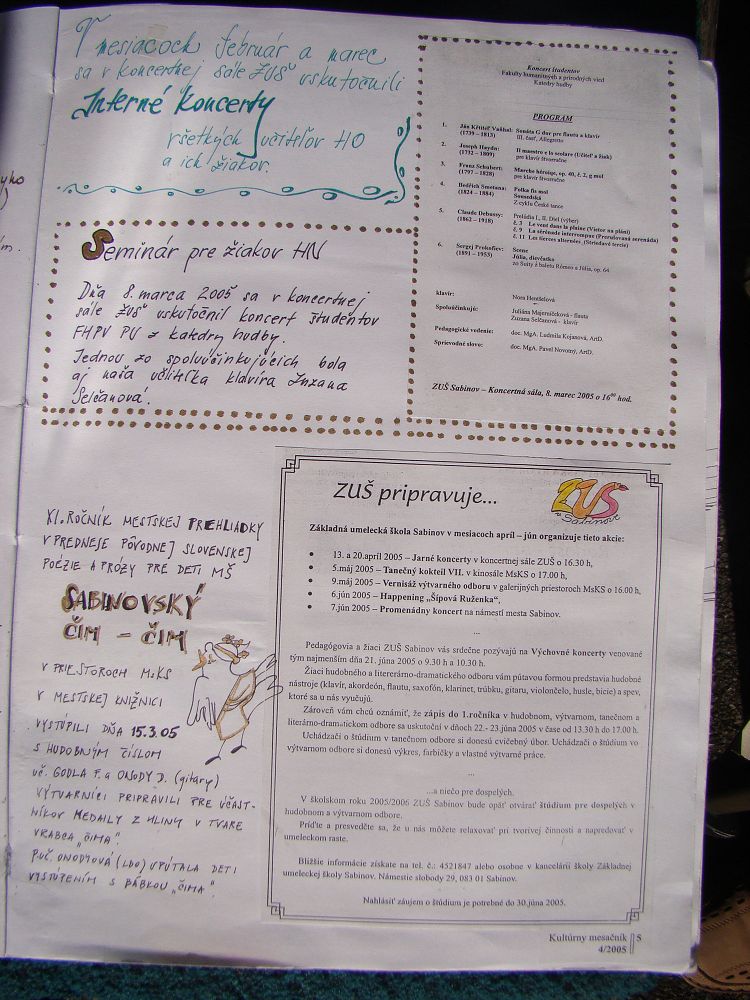 V mesiacoch február a marec
sa v koncertnej sále ZUŠ uskutočnili
Interné koncerty
všetkých učiteľov HO
a ich žiakov.
Seminár pre žiakov HN
Dňa 8. marca 2005 sa v koncertnej
sále ZUŠ uskutočnil koncert študentov
FHPV PU z katedry hudby.
Jednou zo spoluúčinkujúcich bola
aj naša učiteľka klavíra Zuzana
Selčanová.
Koncert študentov
Fakulty humanitných a prírodných vied
Katedry hudby
PROGRAM
1. Ján Křtiteľ Vaňhal: Sonáta G dur pre flautu a klavír
(1739 – 1813) III. časť, Allegretto
2. Joseph Haydn: Il maestro e lo scolare (Učiteľ a žiak)
(1732 – 1809) pre klavír štvorručne
3. Franz Schubert: Marche héroïqe, op. 40, č. 2, g mol
(1797 – 1828) pre klavír štvorručne
4. Bedřich Smetana: Polka fis mol
(1824 – 1884) Sousedská
Z cyklu České tance
5. Claude Debussy: Prelúdiá I., II. Diel (výber)
(1862 – 1918) č. 3 Le vent dans la plaine (Vietor na pláni)
č. 9 La sérénade interrompue (Prerušovaná serenáda)
č. 11 Les tierces alternées, (Striedavé tercie)
6. Sergej Prokofiev: Scene
(1891 – 1953) Júlia, dievčatko
zo Suity z baletu Rómeo a Júlia, op. 64
klavír: Nora Hentšelová
Spoluúčinkujú: Juliána Majerníčeková - flauta
Zuzana Selčanová - klavír
Pedagogické vedenie: doc. MgA. Ludmila Kojanová, ArtD.
Sprievodné slovo: doc. MgA. Pavel Novotný, ArtD.
ZUŠ Sabinov – Koncertná sála, 8. marec 2005 o 16⁰⁰ hod.
XI. ROČNÍK MESTSKEJ PREHLIADKY
V PREDNESE PÔVODNEJ SLOVENSKEJ
POÉZIE A PRÓZY PRE DETI MŠ
SABINOVSKÝ
ČIM – ČIM
V PRIESTOROCH MsKS
V MESTSKEJ KNIŽNICI
VYSTÚPILI DŇA 15.3.05
S HUDOBNÝM ČÍSLOM
uč. GODLA F. a ONODY D. (gitary)
VÝTVARNÍCI PRIPRAVILI PRE ÚČAST-
NÍKOV MEDAILY Z HLINY V TVARE
VRABCA „ČIMA".
p.uč. ONODYOVÁ (LDO) UPÚTALA DETI
VYSTÚPENÍM S BÁBKOU „ČIMA".
ZUŠ pripravuje...
ZUŠ
v Sabinove
Základná umelecká škola Sabinov v mesiacoch apríl – jún organizuje tieto akcie:
• 13. a 20.apríl 2005 – Jarné koncerty v koncertnej sále ZUŠ o 16.30 h,
• 5.máj 2005 – Tanečný kokteil VII. v kinosále MsKS o 17.00 h,
• 9.máj 2005 – Vernisáž výtvarného odboru v galerijných priestoroch MsKS o 16.00 h,
• 6.jún 2005 – Happening „Šípová Ruženka",
• 7.jún 2005 – Promenádny koncert na námestí mesta Sabinov.
...
Pedagógovia a žiaci ZUŠ Sabinov vás srdečne pozývajú na Výchovné koncerty venované
tým najmenším dňa 21. júna 2005 o 9.30 h a 10.30 h.
Žiaci hudobného a litererárno-dramatického odboru vám pútavou formou predstavia hudobné
nástroje (klavír, akordeón, flautu, saxofón, klarinet, trúbku, gitaru, violončelo, husle, bicie) a spev,
ktoré sa u nás vyučujú.
Zároveň vám chcú oznámiť, že zápis do 1.ročníka v hudobnom, výtvarnom, tanečnom a
literárno-dramatickom odbore sa uskutoční v dňoch 22.- 23.júna 2005 v čase od 13.30 h do 17.00 h.
Uchádzači o štúdium v tanečnom odbore si donesú cvičebný úbor. Uchádzači o štúdium vo
výtvarnom odbore si donesú výkres, farbičky a vlastné výtvarné práce.
...
...a niečo pre dospelých.
V školskom roku 2005/2006 ZUŠ Sabinov bude opäť otvárať štúdium pre dospelých v
hudobnom a výtvarnom odbore.
Príďte a presvedčte sa, že u nás môžete relaxovať pri tvorivej činnosti a napredovať v
umeleckom raste.
Bližšie informácie získate na tel. č.: 4521847 alebo osobne v kancelárii školy Základnej
umeleckej školy Sabinov. Námestie slobody 29, 083 01 Sabinov.
Nahlásiť záujem o štúdium je potrebné do 30.júna 2005.
Kultúrny mesačník S
4/2005